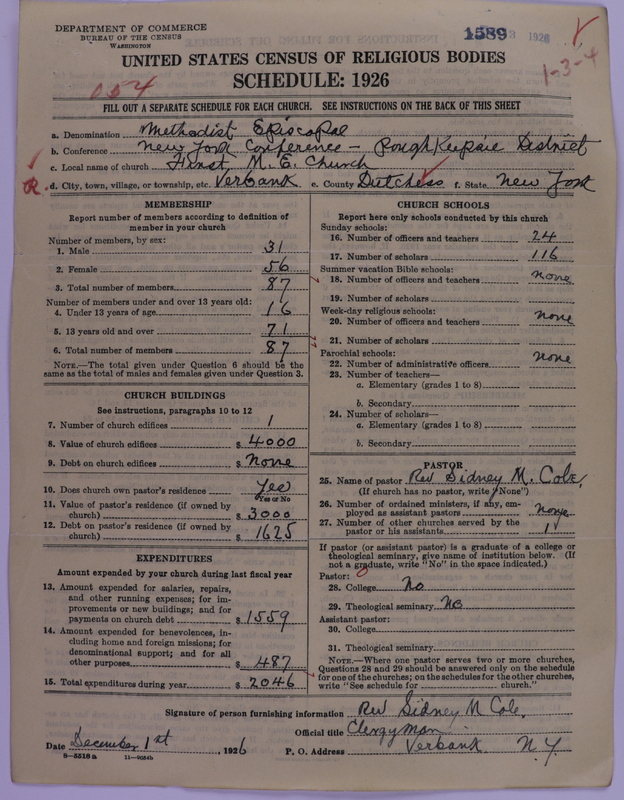 DEPARTMENT OF COMMERCE
BUREAU OF THE CENSUS
WASHINGTON
1589
1926
UNITED STATES CENSUS OF RELIGIOUS BODIES
SCHEDULE: 1926
1-3-4
054
FILL OUT A SEPARATE SCHEDULE FOR EACH CHURCH. SEE INSTRUCTIONS ON THE BACK OF THIS SHEET
a. Denomination Methodist Episcopal
b. Conference New York Conference - Poughkeepsie District
c. Local name of church First M. E. Church
d. City, town, village, or township, etc. Verbank e. County Dutchess f. State New York
MEMBERSHIP
Report number of members according to definition of
member in your church
Number of members, by sex:
1. Male 31
2. Female 56
3. Total number of members 87
Number of members under and over 13 years old:
4. Under 13 years of age 16
5. 13 years old and over 71
6. Total number of members 87
NOTE.—The total given under Question 6 should be
same as the total of males and females given under Question 3.
CHURCH BUILDINGS
See instructions, paragraphs 10 to 12
7. Number of church edifices 1
8. Value of church edifices $ 4000
9. Debt on church edifices $ None
10. Does church own pastor's residence Yes
Yes or No
11. Value of pastor's residence (if owned by
church) $ 3000
12. Debt on pastor's residence (if owned by
church) $ 1625
EXPENDITURES
Amount expended by your church during last fiscal year
13. Amount expended for salaries, repairs,
and other running expenses; for im-
provements or new buildings; and for
payments on church debt $ 1559
14. Amount expended for benevolences, in-
cluding home and foreign missions; for
denominational support; and for all
other purposes $ 487
15. Total expenditures during year $ 2046
CHURCH SCHOOLS
Report here only schools conducted by this church
Sunday schools:
16. Number of officers and teachers 24
17. Number of scholars 116
Summer vacation Bible schools:
18. Number of officers and teachers none
19. Number of scholars
Week-day religious schools:
20. Number of officers and teachers none
21. Number of scholars
Parochial schools:
22. Number of administrative officers none
23. Number of teachers—
a. Elementary (grades 1 to 8)
b. Secondary
24. Number of scholars—
a. Elementary (grades 1 to 8)
b. Secondary
PASTOR
25. Name of pastor Rev Sidney M. Cole,
(If church has no pastor, write "None")
26. Number of ordained ministers, if any, em-
ployed as assistant pastors none
27. Number of other churches served by the
pastor or his assistants 1
If pastor (or assistant pastor) is a graduate of a college or
theological seminary, give name of institution below. (If
not a graduate, write "No" in the space indicated.)
Pastor:
28. College No
29. Theological seminary No
Assistant pastor:
30. College
31. Theological seminary
NOTE.—Where one pastor serves two or more churches,
Questions 28 and 29 should be answered only on the schedule
for one of the churches; on the schedules for the other churches,
write "See schedule for church."
Signature of person furnishing information Rev Sidney M Cole,
Official title Clergyman
Date December 1st, 1926 P. O. Address Verbank N. Y.
8-5518 a 11-9054b